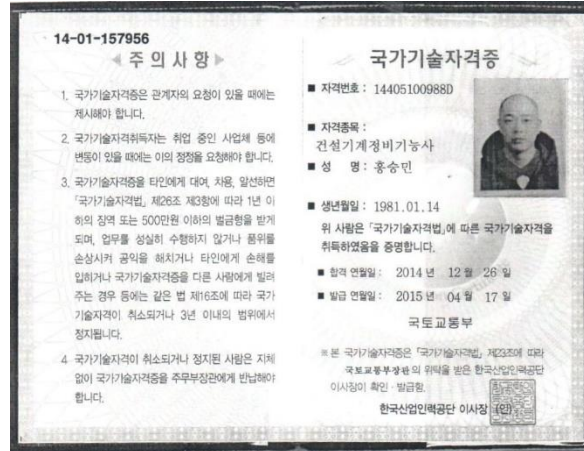 14-01-157956
주 의 사 항
1. 국가기술자격증은 관계자의 요청이 있을 때에는
제시해야 합니다.
2. 국가기술자격취득자는 취업 중인 사업체 등에
변동이 있을 때에는 이의 정정을 요청해야 합니다.
3. 국가기술자격증을 타인에게 대여, 차용, 알선하면
「국가기술자격법」 제26조 제3항에 따라 1년 이
하의 징역 또는 500만원 이하의 벌금형을 받게
되며, 업무를 성실히 수행하지 않거나 품위를
손상시켜 공익을 해치거나 타인에게 손해를
입히거나 국가기술자격증을 다른 사람에게 빌려
주는 경우 등에는 같은 법 제16조에 따라 국가
기술자격이 취소되거나 3년 이내의 범위에서
정지됩니다.
4 국가기술자격이 취소되거나 정지된 사람은 지체
없이 국가기술자격증을 주무부장관에게 반납해야
합니다.
국가기술자격증
■ 자격번호 : 14405100988D
■ 자격종목 :
건설기계정비기능사
■ 성 명 : 홍승민
■ 생년월일 : 1981.01.14
위 사람은 「국가기술자격법」에 따른 국가기술자격을
취득하였음을 증명합니다.
■ 합격 연월일 : 2014 년 12 월 26 일
■ 발급 연월일 : 2015 년 04 월 17 일
국토교통부
※ 본 국가기술자격증은 「국가기술자격법」 제23조에 따라
국토교통부장관의 위탁을 받은 한국산업인력공단
이사장이 확인 · 발급함.
한국산업인력공단 이사장 (인)